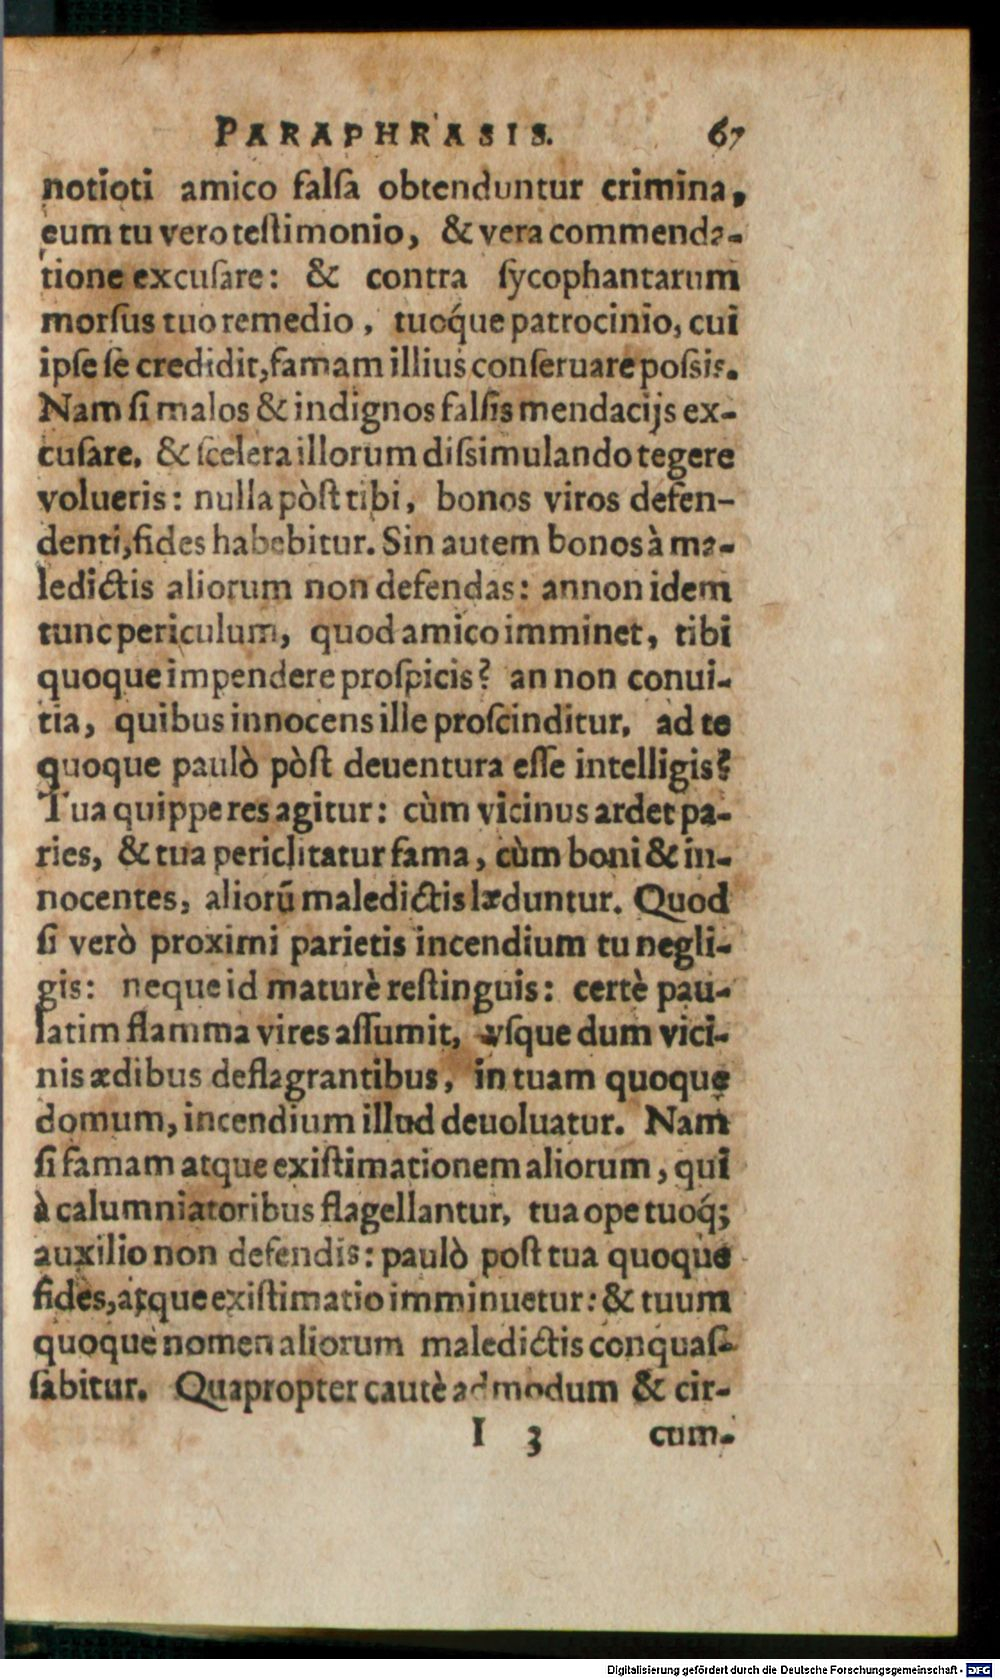 PARAPHRASIS. 67
notioti amico falſa obtenduntur crimina,
eum tu vero teſtimonio, & vera commenda-
tione excuſare: & contra ſycophantarum
morſus tuo remedio, tuoq́ue patrocinio, cui
ipſe ſe credidit, famam illius conſeruare poſsis.
Nam ſi malos & indignos falſis mendacijs ex-
cuſare, & ſcelera illorum diſsimulando tegere
volueris: nulla pòſt tibi, bonos viros defen-
denti, fides habebitur. Sin autem bonos à ma-
ledictis aliorum non defendas: annon idem
tunc periculum, quod amico imminet, tibi
quoque impendere proſpicis? an non conui-
tia, quibus innocens ille proſcinditur, ad te
quoque paulò pòſt deuentura eſſe intelligis?
Tua quippe res agitur: cùm vicinus ardet pa-
ries, & tua periclitatur fama, cùm boni & in-
nocentes, aliorū maledictis læduntur. Quod
ſi verò proximi parietis incendium tu negli-
gis: neque id maturè reſtinguis: certè pau-
latim flamma vires aſſumit, vſque dum vici-
nis ædibus deflagrantibus, in tuam quoque
domum, incendium illud deuoluatur. Nam
ſi famam atque exiſtimationem aliorum, qui
à calumniatoribus flagellantur, tua ope tuoq́;
auxilio non defendis: paulò poſt tua quoque
fides, atque exiſtimatio imminuetur: & tuum
quoque nomen aliorum maledictis conquaſ-
ſabitur. Quapropter cautè admodum & cir-
I 3 cum-
Digitalisierung gefördert durch die Deutsche Forschungsgemeinschaft - DFG